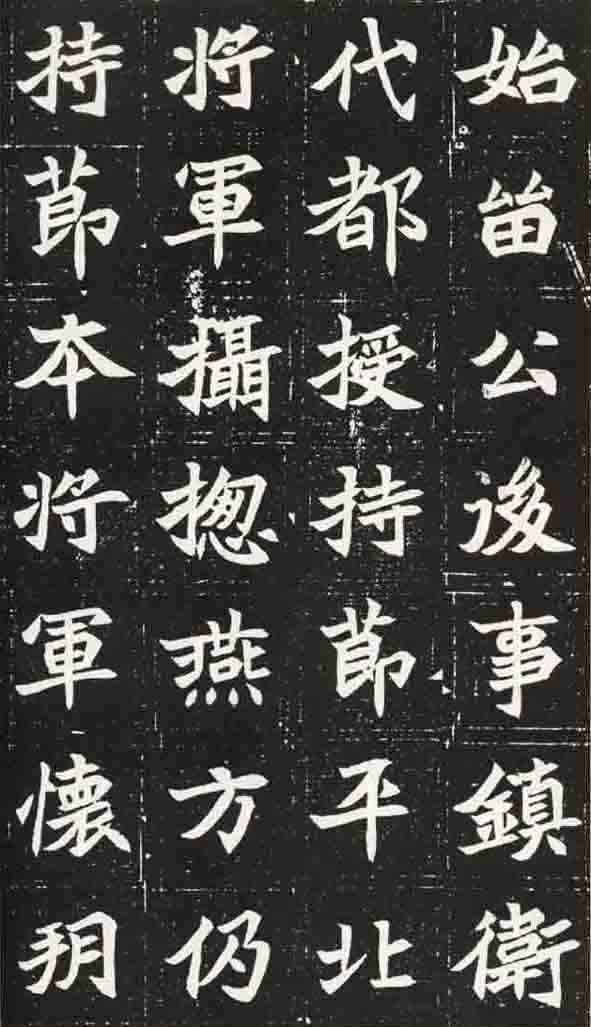 始留公後事鎮衛
代都授持莭平北
將軍攝揔燕方仍
持莭本將軍懷朔